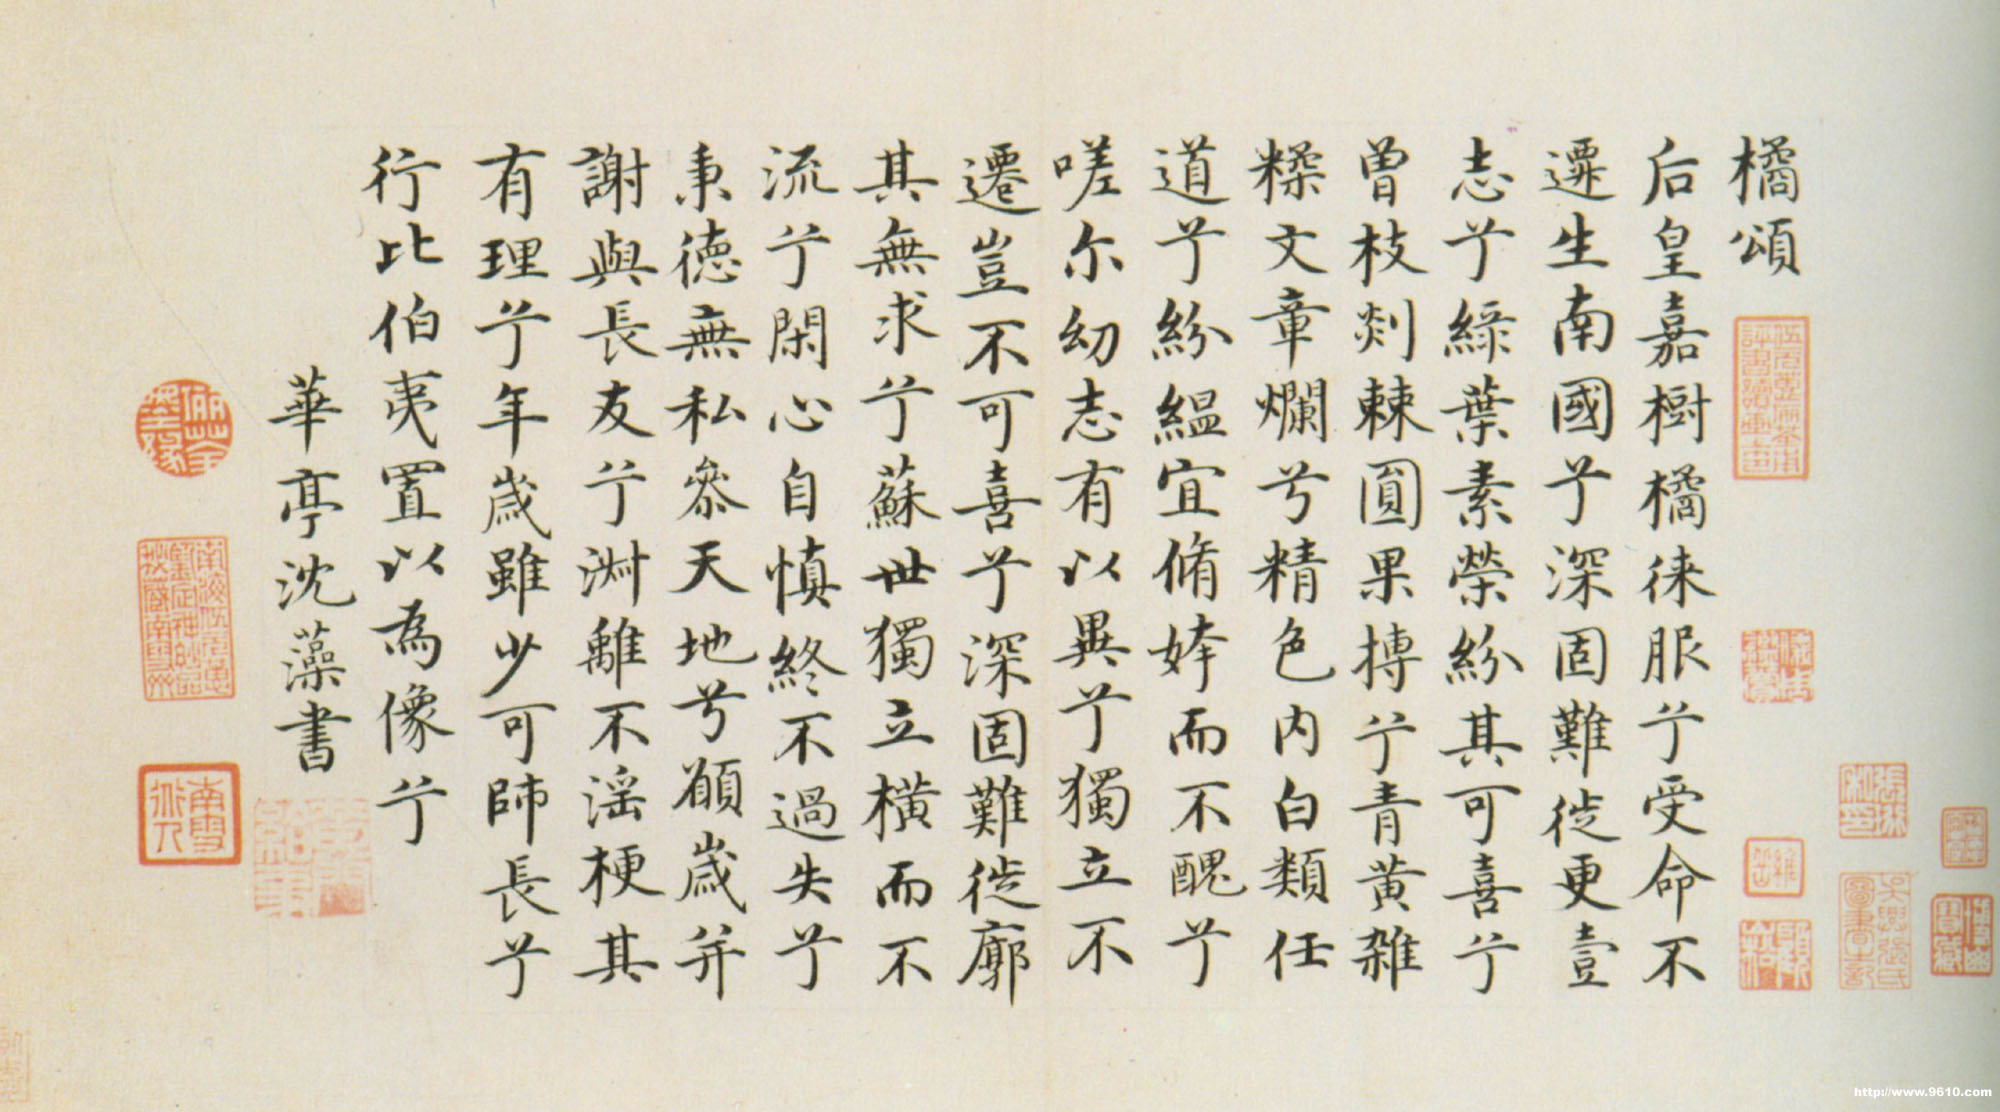 橘頌
后皇嘉樹橘徠服兮受命不
遷生南國兮深固難徙更壹
志兮綠葉素榮紛其可喜兮
曾枝剡棘圓果摶兮青黃雜
糅文章爛兮精色内白類任
道兮紛緼宜脩姱而不醜兮
嗟尔幼志有以異兮獨立不
遷豈不可喜兮深固難徙廓
其無求兮蘇世獨立橫而不
流兮閑心自慎終不過失兮
秉德無私叅天地兮願歲并
謝與長友兮淑離不淫梗其
有理兮年歲雖少可師長兮
行比伯夷置以為像兮
華亭沈藻書
南雪
http://www.9610.com